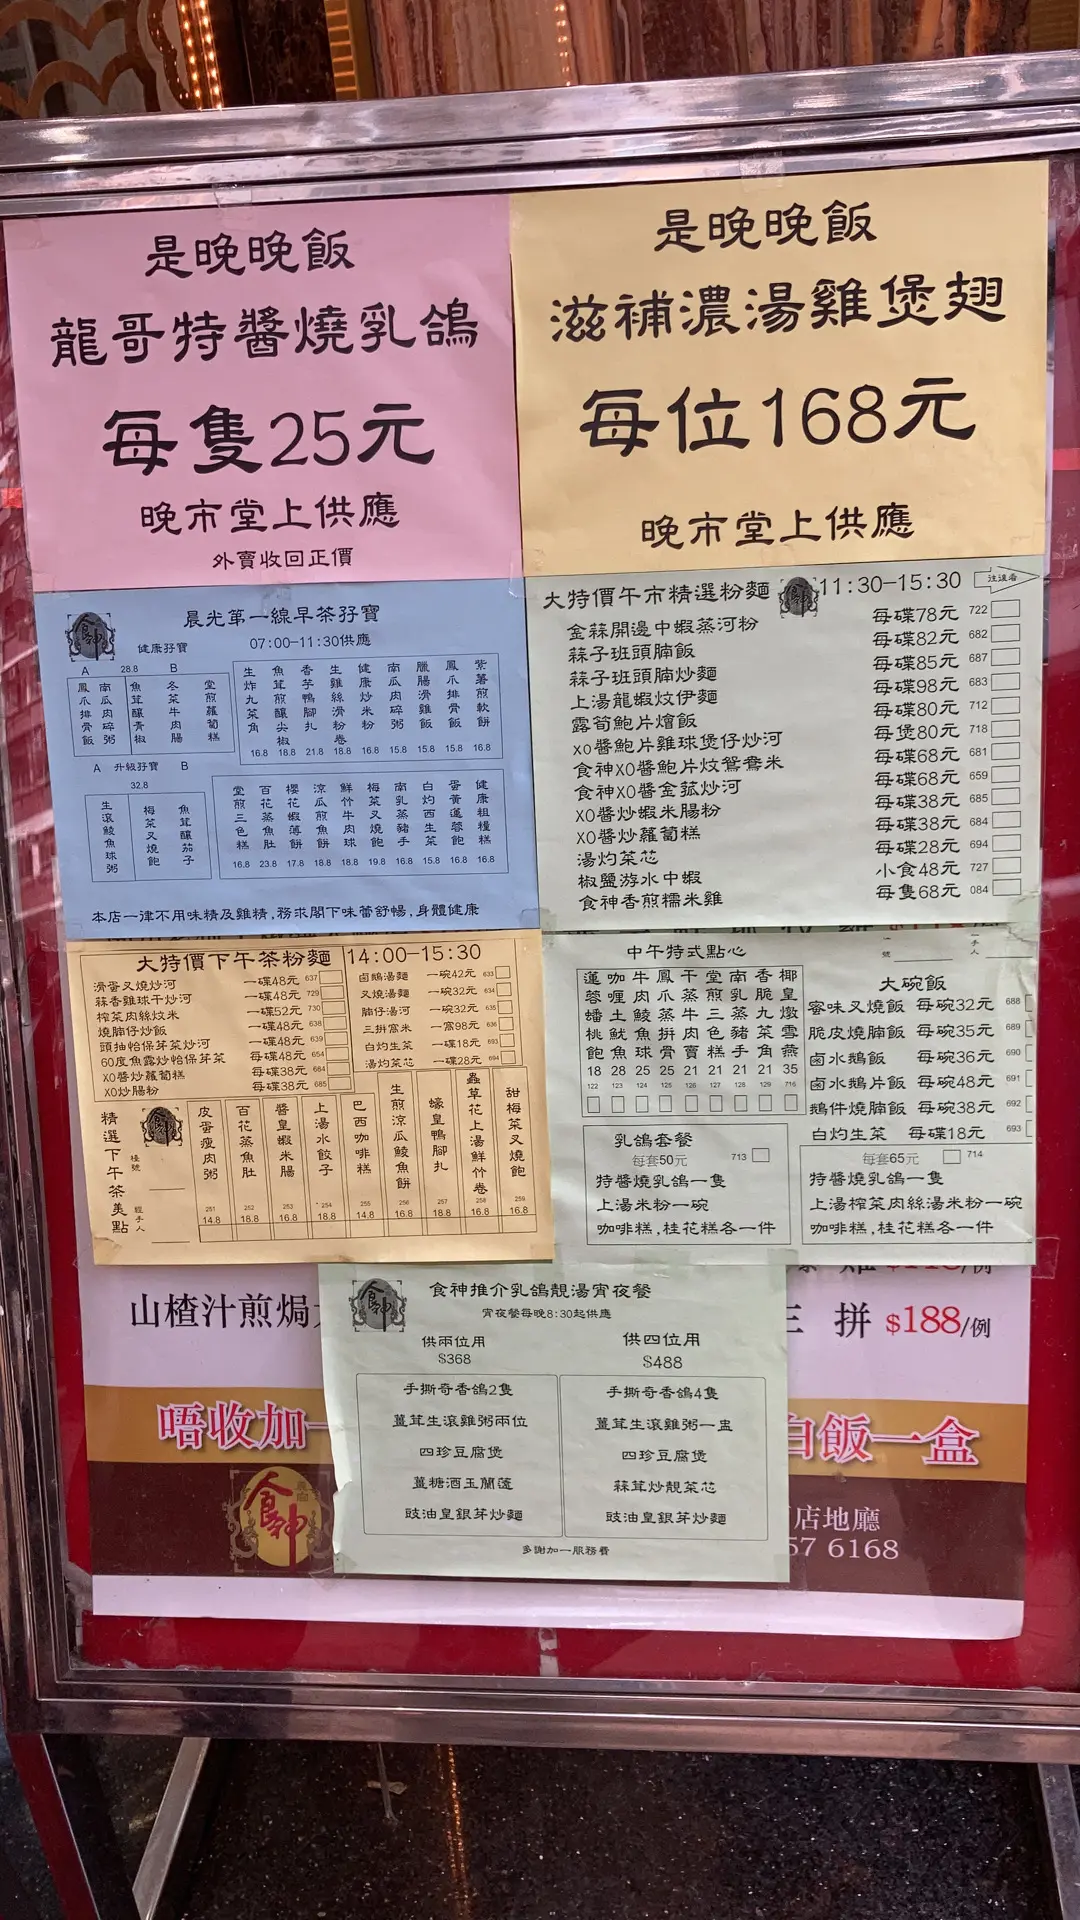 是晚晚飯
龍哥特醬燒乳鴿
每隻25元
晚市堂上供應
外賣收回正價
是晚晚飯
滋補濃湯雞煲翅
每位168元
晚市堂上供應
食神
晨光第一線早茶孖寶
07:00-11:30供應
健康孖寶
A 28.8 B
鳳爪排骨飯
南瓜肉碎粥
魚茸釀青椒
冬菜牛肉腸
堂煎蘿蔔糕
生炸九菜角 16.8
魚茸煎釀尖椒 18.8
香芋鴨腳扎 21.8
生雞絲滑粉卷 18.8
健康炒米粉 16.8
南瓜肉碎粥 15.8
臘腸滑雞飯 15.8
鳳爪排骨飯 15.8
紫薯煎軟餅 16.8
A 升級孖寶 B
32.8
生滾鯪魚球粥
梅菜叉燒飽
魚茸釀茄子
堂煎三色糕 16.8
百花蒸魚肚 23.8
櫻花蝦薄餅 17.8
涼瓜煎魚餅 18.8
鮮竹牛肉球 18.8
梅菜叉燒飽 19.8
南乳蒸豬手 16.8
白灼西生菜 15.8
蛋黃蓮蓉飽 16.8
健康粗糧糕 16.8
本店一律不用味精及雞精,務求閣下味蕾舒暢,身體健康
大特價午市精選粉麵 食神 11:30-15:30 往這看
金蒜開邊中蝦蒸河粉 每碟78元 722
蒜子班頭腩飯 每碟82元 682
蒜子班頭腩炒麵 每碟85元 687
上湯龍蝦炆伊麵 每碟98元 683
露筍鮑片燴飯 每碟80元 712
XO醬鮑片雞球煲仔炒河 每煲80元 718
食神XO醬鮑片炆鴛鴦米 每碟68元 681
食神XO醬金菇炒河 每碟68元 659
XO醬炒蝦米腸粉 每碟38元 685
XO醬炒蘿蔔糕 每碟38元 684
湯灼菜芯 每碟28元 694
椒鹽游水中蝦 小食48元 727
食神香煎糯米雞 每隻68元 084
大特價下午茶粉麵 14:00-15:30
滑蛋叉燒炒河 一碟48元 637
蒜香雞球干炒河 一碟48元 729
榨菜肉絲炆米 一碟52元 730
燒腩仔炒飯 一碟48元 638
頭抽怡保芽菜炒河 一碟48元 639
60度魚露炒怡保芽菜 每碟48元 654
XO醬炒蘿蔔糕 每碟38元 684
XO炒腸粉 每碟38元 685
鹵鵝湯麵 一碗42元 633
叉燒湯麵 一碗32元 634
腩仔湯河 一碗32元 635
三拼窩米 一窩98元 636
白灼生菜 一碟18元 693
湯灼菜芯 一碟28元 694
精選下午茶美點
食神
檯號
經手人
皮蛋瘦肉粥 251 14.8
百花蒸魚肚 252 18.8
醬皇蝦米腸 253 16.8
上湯水餃子 254 18.8
巴西咖啡糕 255 14.8
生煎涼瓜鯪魚餅 256 16.8
蠔皇鴨腳扎 257 18.8
蟲草花上湯鮮竹卷 258 16.8
甜梅菜叉燒飽 259 16.8
中午特式點心
號
手人
蓮蓉蟠桃飽 18 122
咖喱土魷魚 28 123
牛肉鯪魚球 25 124
鳳爪蒸拼骨 25 125
干蒸牛賣 21 126
堂煎三色糕 21 127
南乳蒸豬手 21 128
香脆九菜角 21 129
椰皇燉雪燕 35 716
大碗飯
蜜味叉燒飯 每碗32元 688
脆皮燒腩飯 每碗35元 689
鹵水鵝飯 每碗36元 690
鹵水鵝片飯 每碗48元 691
鵝件燒腩飯 每碗38元 692
白灼生菜 每碟18元 693
乳鴿套餐
每套50元 713
特醬燒乳鴿一隻
上湯米粉一碗
咖啡糕,桂花糕各一件
每套65元 714
特醬燒乳鴿一隻
上湯榨菜肉絲湯米粉一碗
咖啡糕,桂花糕各一件
食神
食神推介乳鴿靚湯宵夜餐
宵夜餐每晚8:30起供應
供兩位用
$368
手撕奇香鴿2隻
薑茸生滾雞粥兩位
四珍豆腐煲
薑糖酒玉蘭蓬
豉油皇銀芽炒麵
供四位用
$488
手撕奇香鴿4隻
薑茸生滾雞粥一盅
四珍豆腐煲
蒜茸炒靚菜芯
豉油皇銀芽炒麵
多謝加一服務費
山楂汁煎焗
拼 $188/例
唔收加一
白飯一盒
食神
店地廳
57 6168